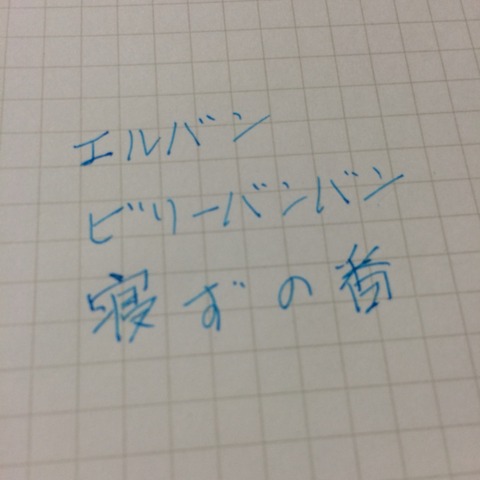 エルバン
ビリーバンバン
寝ずの番